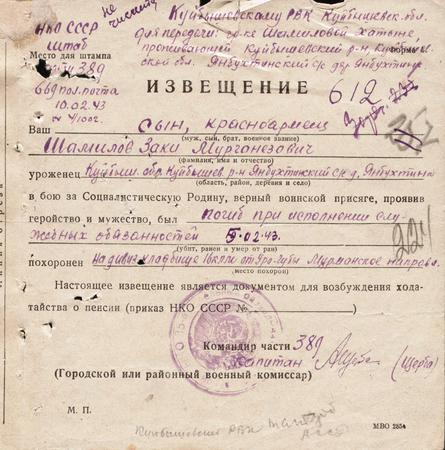 не
числить
НКО СССР
штаб
Место для штампа
части 389
668 пол. почта
10.02.43
Куйбышевскому РВК Куйбышевск. обл.
для передачи: гр-ке Шамиловой Хатыне,
проживающей Куйбышевский р-н, Куйбыш
ской обл. Янбухтинский с/с дер Янбухтино
формы 4
ИЗВЕЩЕНИЕ
612
Ваш сын, красноармеец
(муж, сын, брат, военное звание)
Шамилов Заки
(фамилия, имя и отчество)
уроженец Куйбыш. обр. Куйбышев р-н Янбухтинский с/с д. Янбухтина
(область, район, деревня и село)
в бою за Социалистическую Родину, верный воинской присяге, проявив
геройство и мужество, был погиб при исполнении слу-
жебных обязанностей 5.02.43.
(убит, ранен и умер от ран)
224
похоронен На дивиз. кладбище 16 км от Мурманское направл.
(место похорон)
Настоящее извещение является документом для возбуждения хода-
тайства о пенсии (приказ НКО СССР №
Командир части 389
Капитан (Щерба)
(Городской или районный военный комиссар)
М. П.
МВО 2854
Куйбышевский РВК